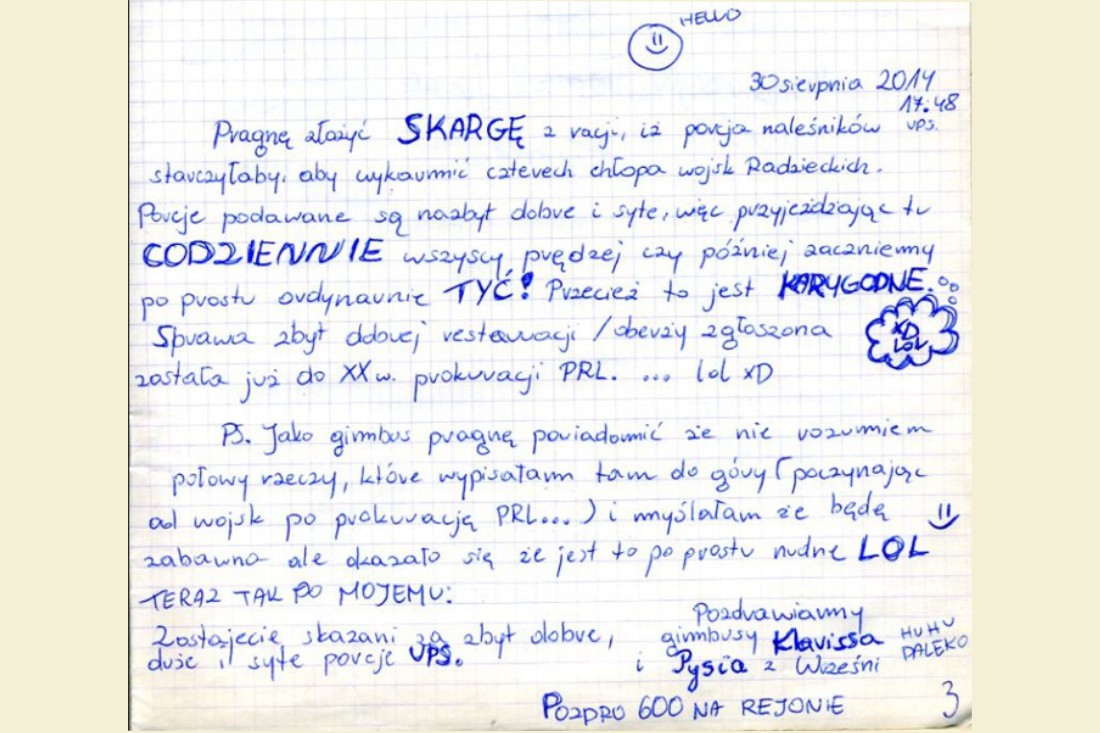 HELLO
30 sierpnia 2014
17:48
ups.
Pragnę złożyć SKARGĘ z racji, iż porcja naleśników
starczyłaby, aby wykarmić czterech chłopa wojsk Radzieckich.
Porcje podawane są nazbyt dobre i syte, więc przyjeżdżając tu
CODZIENNIE wszyscy prędzej czy później zaczniemy
po prostu ordynarnie TYĆ! Przecież to jest KARYGODNE.
Sprawa zbyt dobrej restauracji / oberży zgłoszona
XD
LOL
została już do XX w. prokuracji PRL. ... lol xD
PS. Jako gimbus pragnę powiadomić że nie rozumiem
połowy rzeczy, które wypisałam tam do góry (poczynając
od wojsk po prokuracją PRL...) i myślałam że będę
zabawna ale okazało się że jest to po prostu nudne LOL
TERAZ TAK PO MOJEMU:
Zostajecie skazani za zbyt dobre,
duże i syte porcje UPS.
Pozdrawiamy
gimbusy Klarissa
i Pysia z Wrześni
HUHU
DALEKO
POZDRO 600 NA REJONIE
3